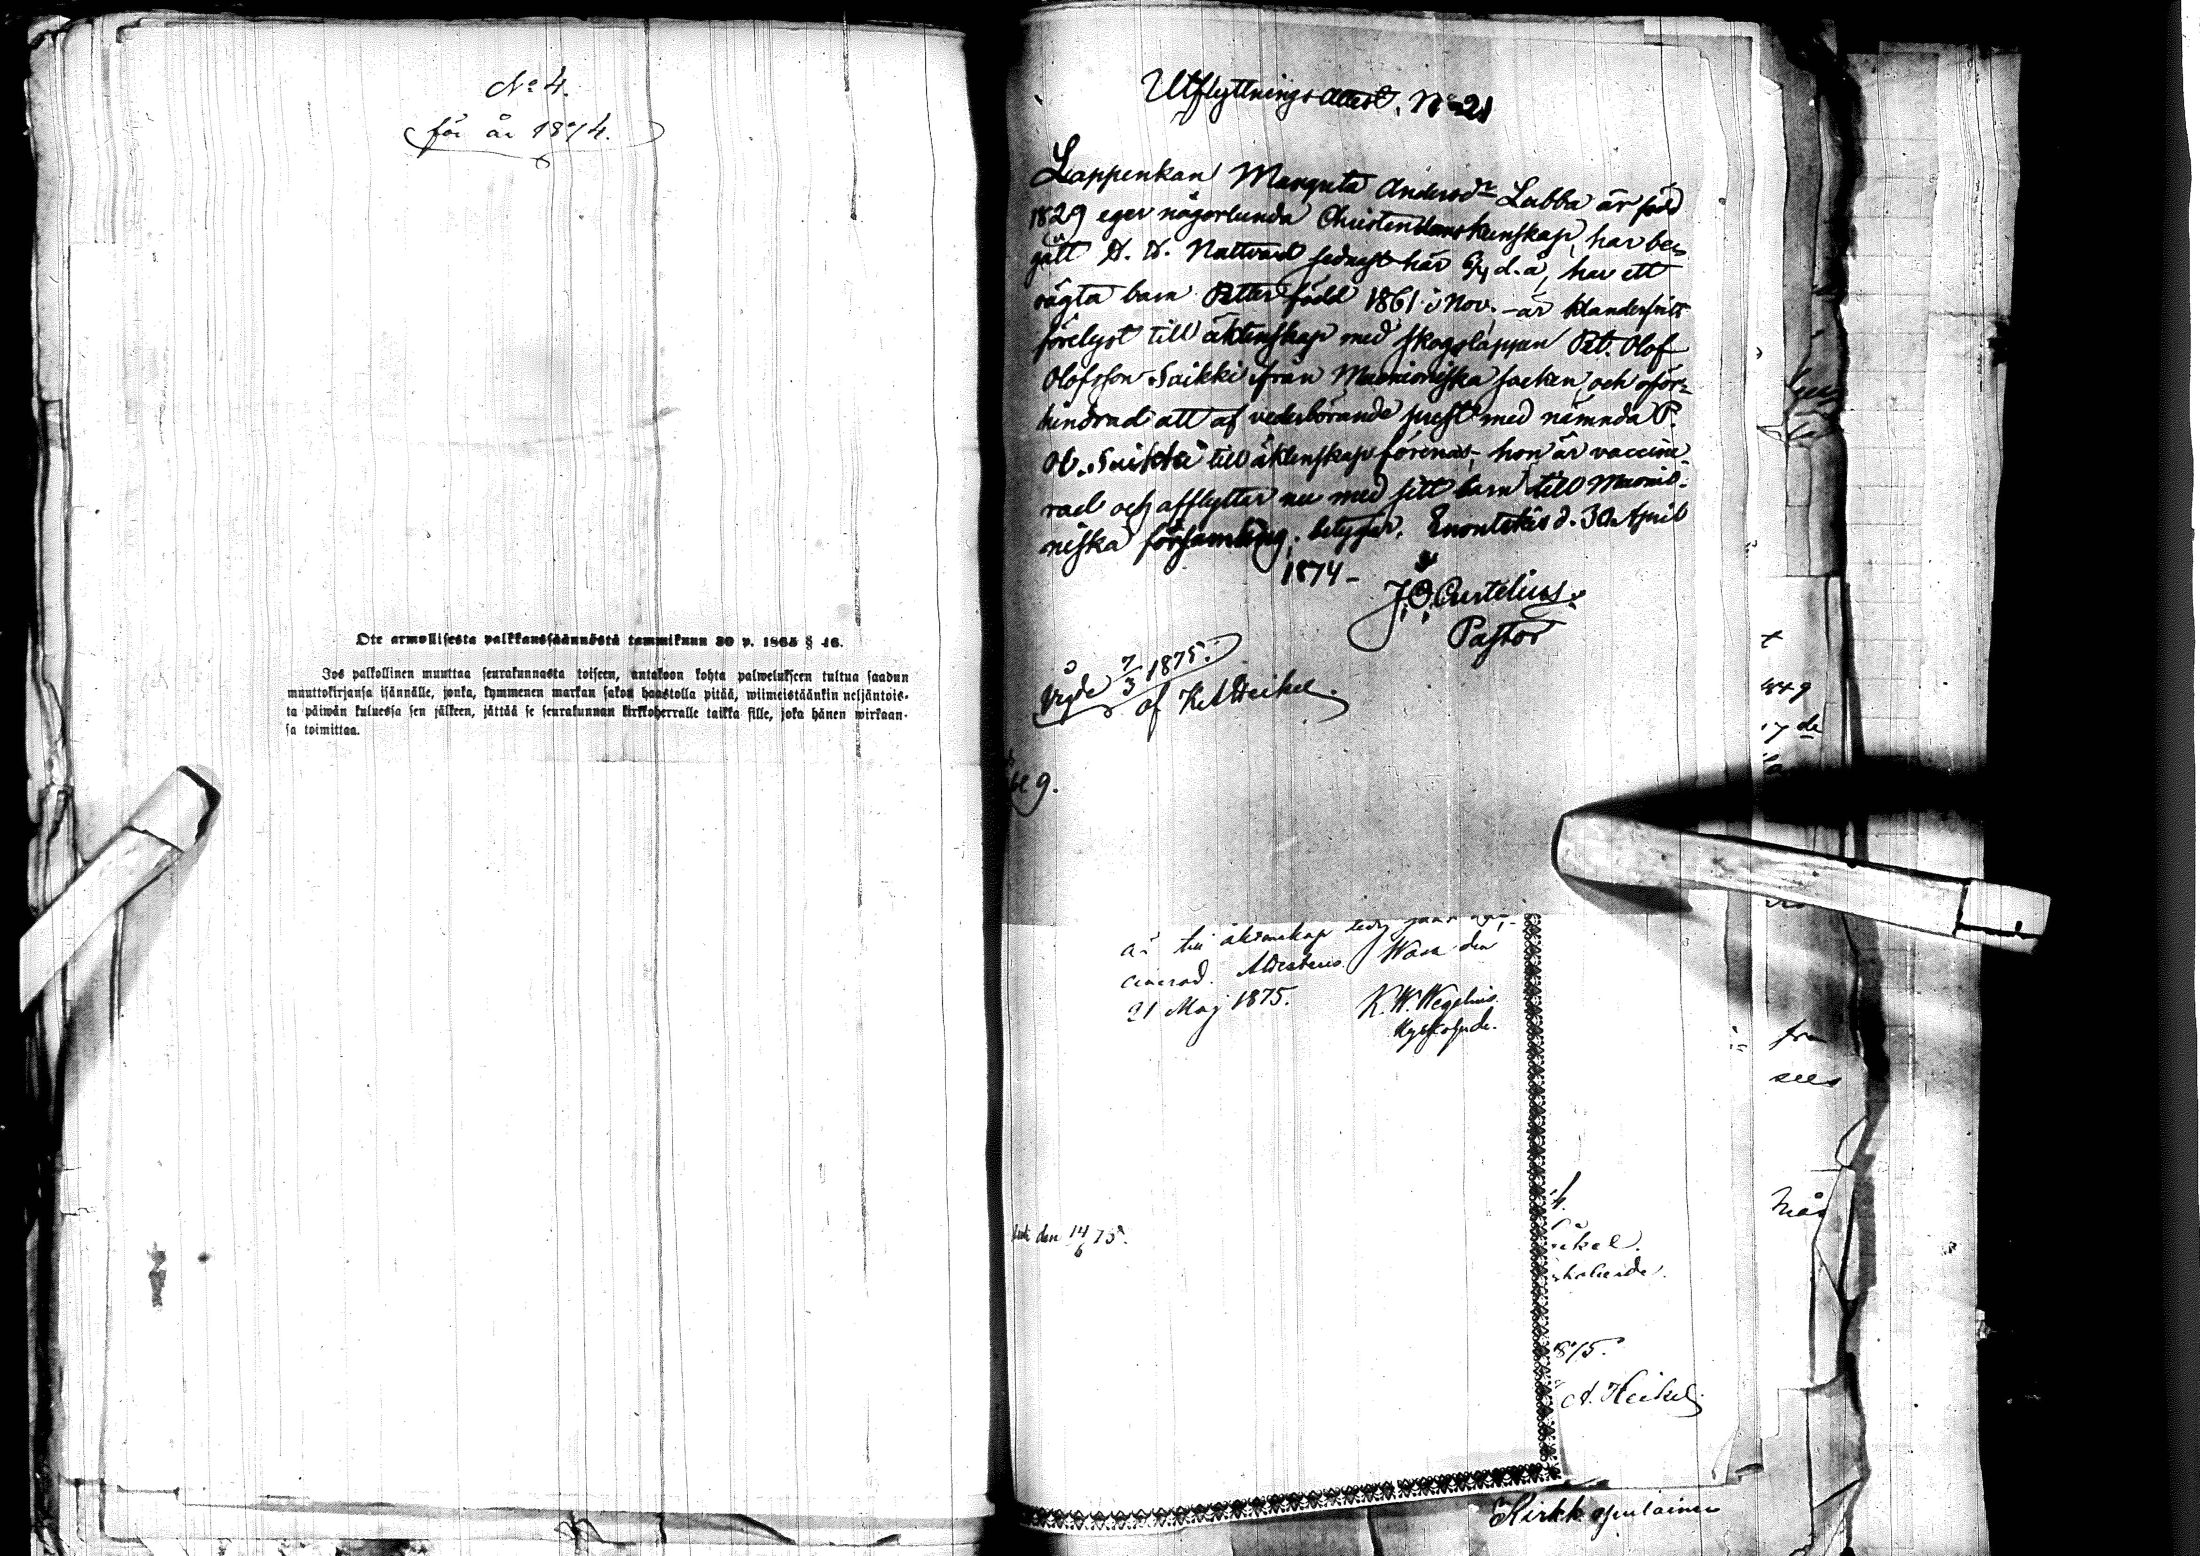 No 4.
för år 1874.
Ote armollisesta palkkaussäännöstä tammikuun 30 p. 1865 § 46.
Jos palkollinen muuttaa seurakunnasta toiseen, antakoon kohta palwelukseen tultua saadun
muuttokirjansa isännälle, jonka, kymmenen markan sakon haastolla pitää, wiimeistäänkin neljäntois-
ta päiwän kuluessa sen jälkeen, jättää se seurakunnan kirkkoherralle taikka sille, joka hänen wirkaan-
sa toimittaa.
Utflyttnings attest. No 21
Lappenkan Margreta Andersdr Labba är född
1829 eger någorlunda Christendomskunskap, har be-
gått H. H. Nattvard sednast här 6/4 d.å, har ett
oägta barn Petter född 1861 i Nov. - är
förelyst till äktenskap med skogslappen Pet. Olof
Olofsson Saikki från Muonioniska socken och oför-
hindrad att af vederbörande prest med nämnda P.
O. Saikki till äktenskap förenas; hon är vaccine-
rad och afflyttar nu med sitt barn till Muonio-
niska församling; betygar. Enontekis d. 30 April
1874 -
J. O. Curtelius.
Pastor
Vigde 7/3 1875.
af K A Heikel.
9.
är till äktenskap ledig
cinerad. Attesteras. Wasa den
21 Maj 1875. K. W. Wegelius.
den 14/6 75.
1875.
A. Heikel
Kirkk